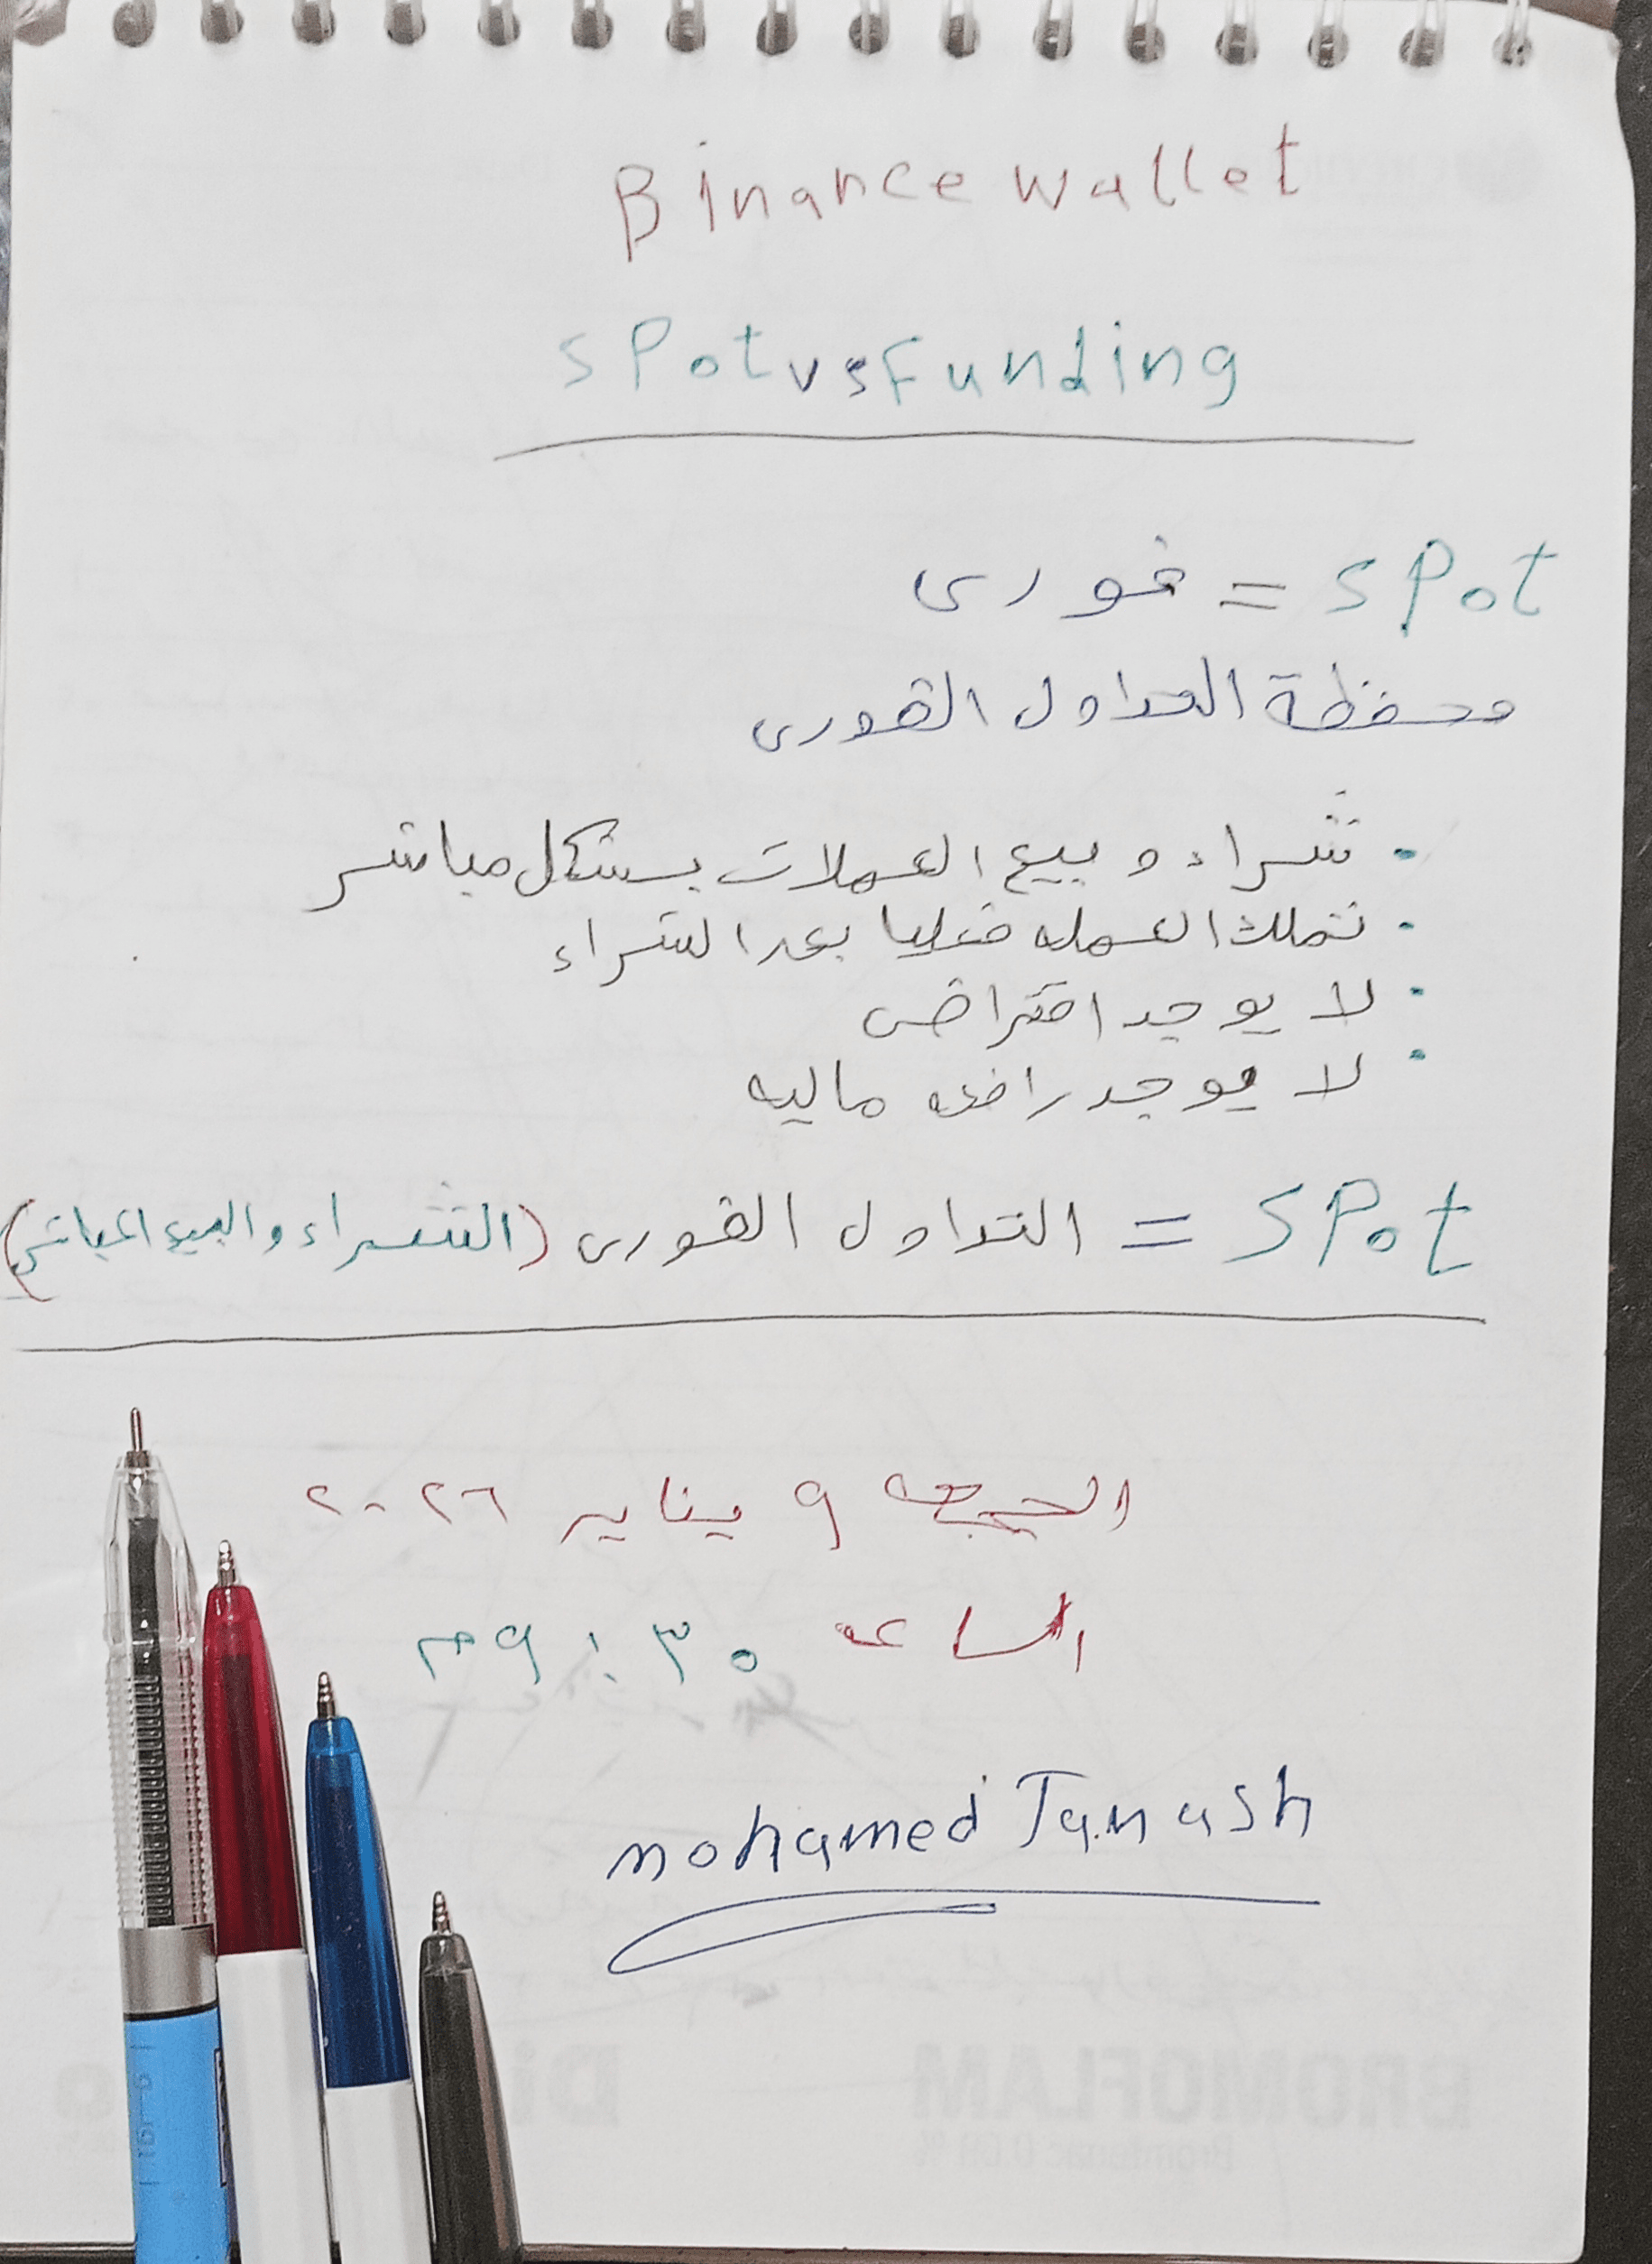 Binance wallet
SPot vs Funding
SPot = فورى
محفظة التداول الفورى
• شراء و بيع العملات بشكل مباشر
• تملك العمله فعليا بعد الشراء
• لا يوجد اقتراض
• لا يوجد رافعه ماليه
SPot = التداول الفورى (الشراء والبيع المباشر)
الجمعه ٩ يناير ٢٠٢٦
الساعه ٩:٣٠ م
mohamed Tanash
BROMOFLAM